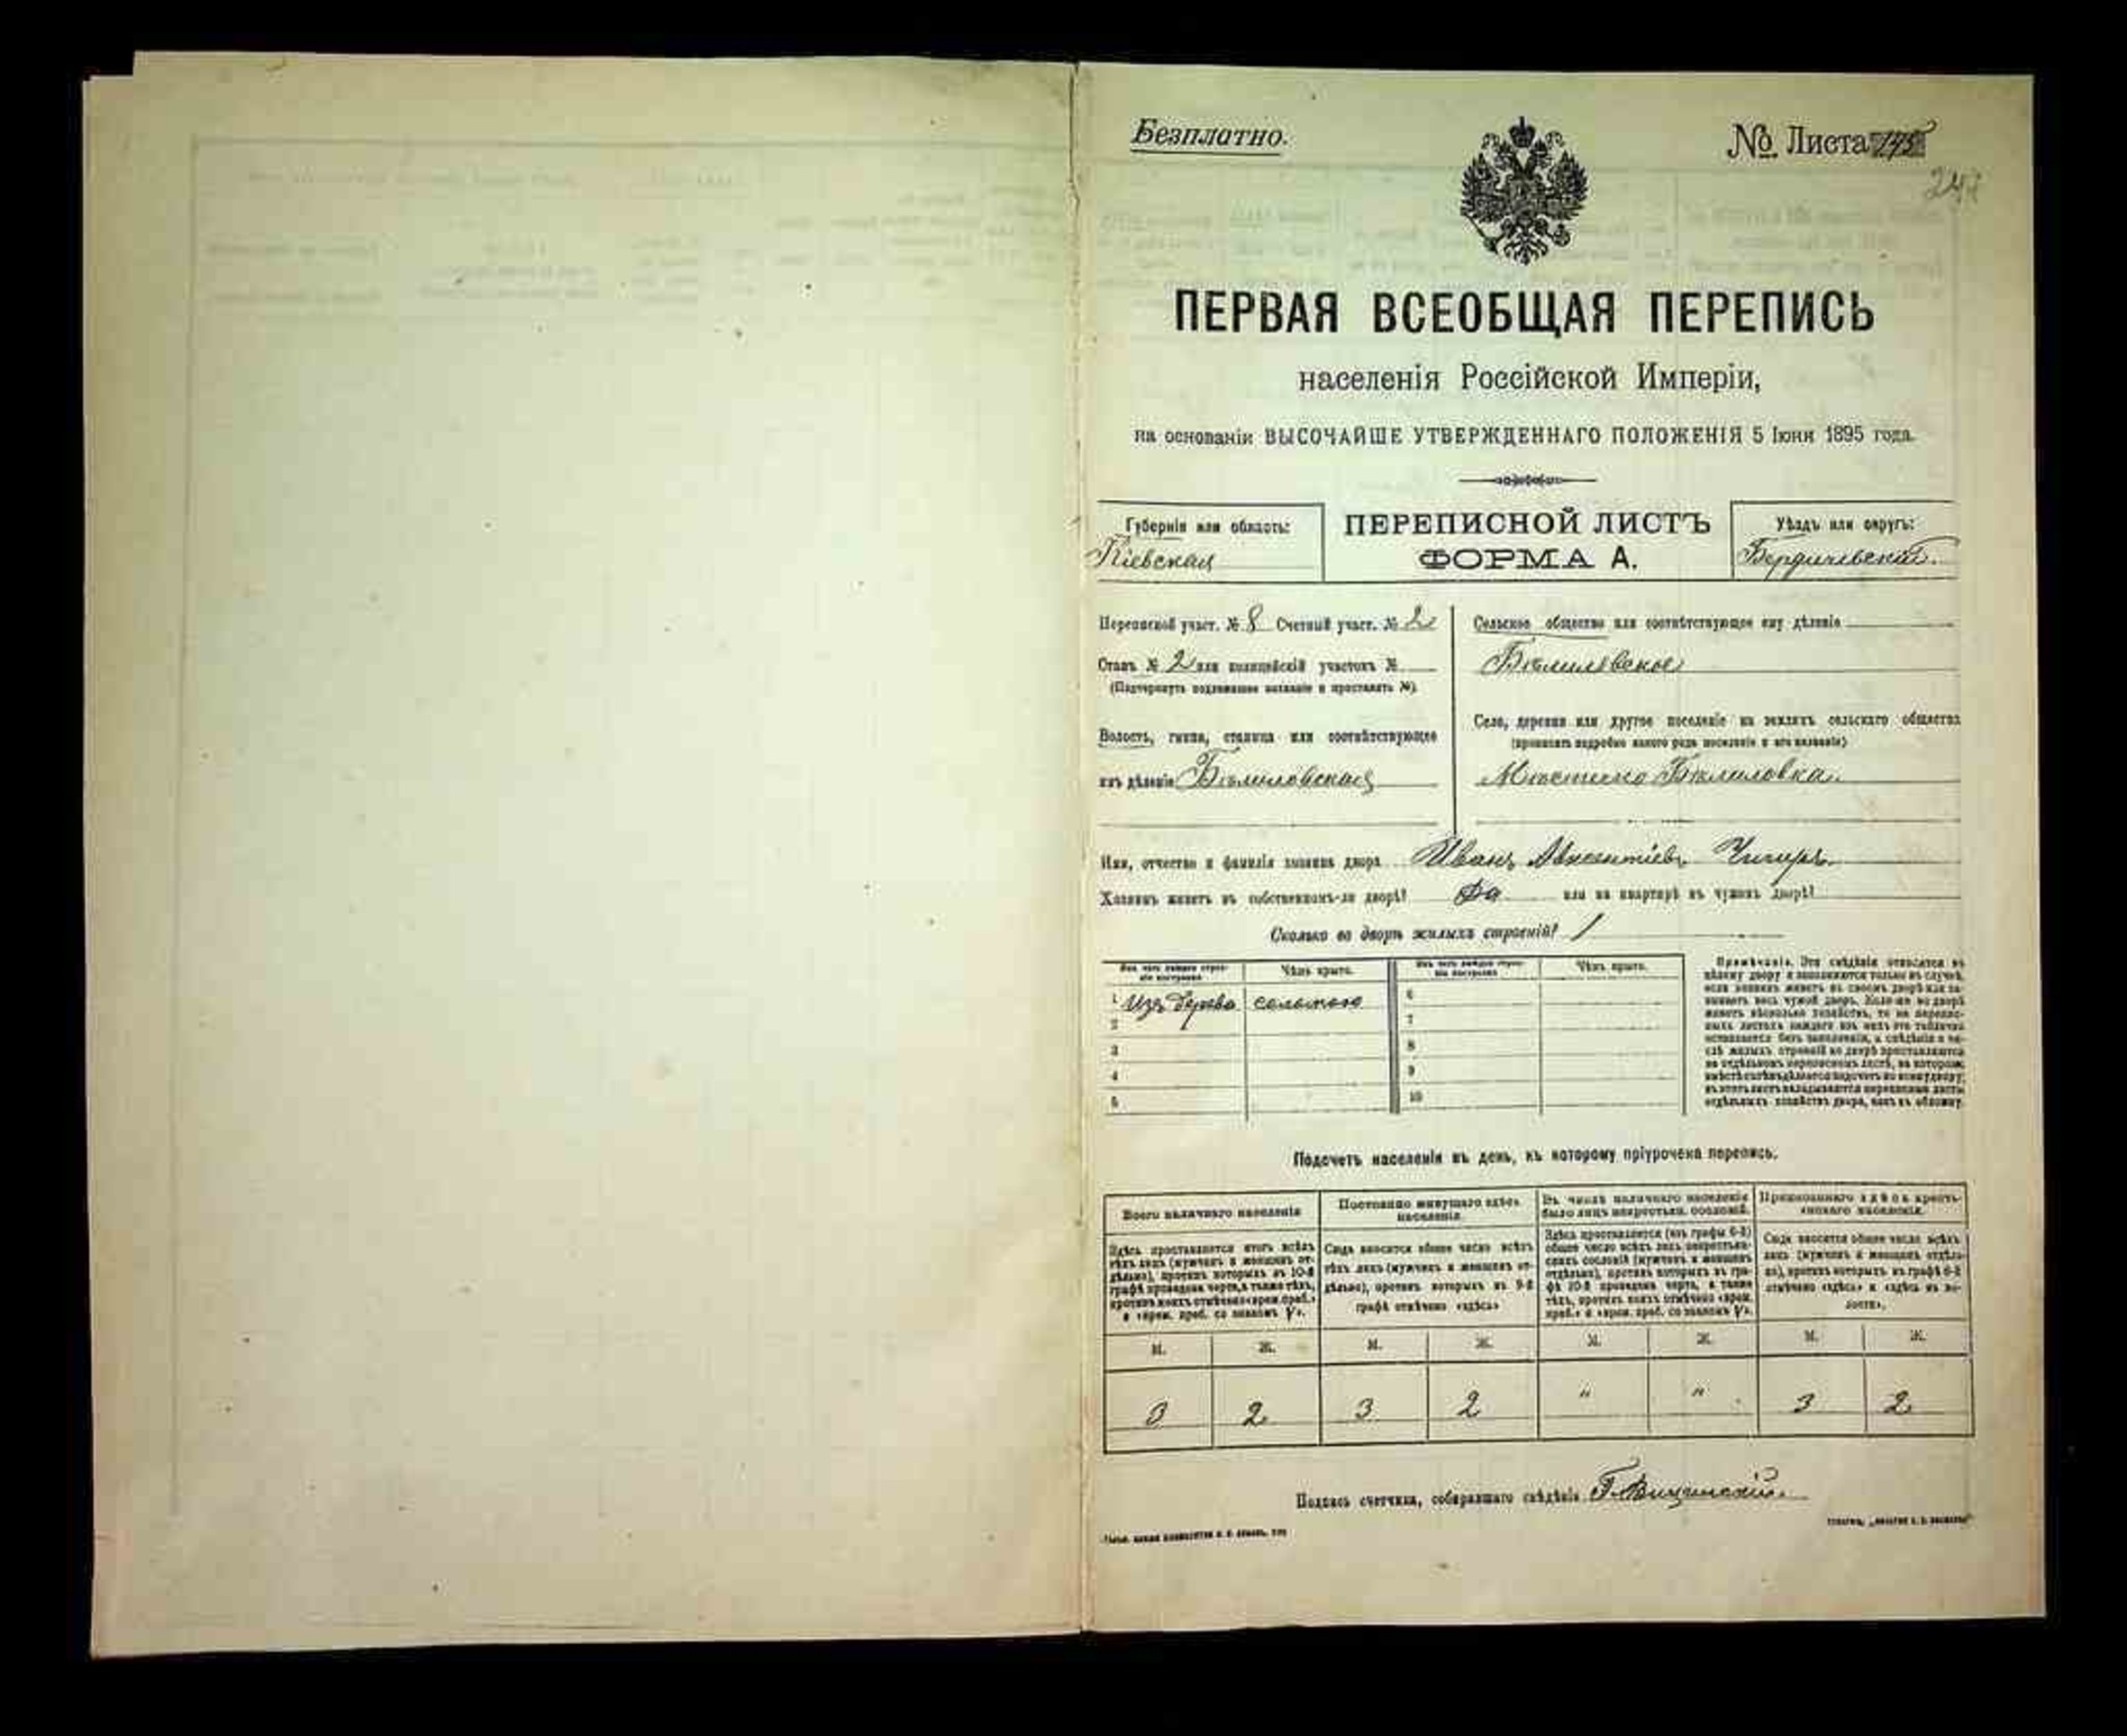 Безплатно.
№ Листа 175
247
ПЕРВАЯ ВСЕОБЩАЯ ПЕРЕПИСЬ
населенія Россійской Имперіи,
на основаніи ВЫСОЧАЙШЕ УТВЕРЖДЕННАГО ПОЛОЖЕНІЯ 5 Іюня 1895 года.
Губернія или область:
Кіевская
ПЕРЕПИСНОЙ ЛИСТЪ
ФОРМА А.
Уѣздъ или округъ:
Бердичевскій.
Переписной участ. № 8 Счетный участ. № 2
Станъ № 2 или полицейскій участокъ №
(Подчеркнуть подлежащее названіе и проставить №).
Волость, гмина, станица или соотвѣтствующее
имъ дѣленіе Бѣлиловская
Сельское общество или соотвѣтствующее ему дѣленіе
Бѣлиловское
Село, деревня или другое поселеніе на земляхъ сельскаго общества
(прописать подробно какого рода поселеніе и его названіе)
Мѣстечко Бѣлиловка.
Имя, отчество и фамилія хозяина двора Иванъ Авксентіевъ Чигирь.
Хозяинъ живетъ въ собственномъ-ли дворѣ? Да или на квартирѣ въ чужомъ дворѣ?
Сколько во дворѣ жилыхъ строеній? 1
Изъ чего каждое строеніе построено
Чѣмъ крыто.
Изъ чего каждое строеніе построено
Чѣмъ крыто.
1 Изъ дерева соломою
2
3
4
5
6
7
8
9
10
Примѣчаніе. Эти свѣдѣнія относятся къ
цѣлому двору и заполняются только въ случаѣ,
если хозяинъ живетъ въ своемъ дворѣ или занимаетъ
весь чужой дворъ. Коли-же во дворѣ
живетъ нѣсколько хозяйствъ, то на переписныхъ
листахъ каждаго изъ нихъ эта табличка
оставляется безъ заполненія, а свѣдѣнія о числѣ
жилыхъ строеній во дворѣ проставляются
на отдѣльномъ переписномъ листѣ, на которомъ
вмѣстѣ съ тѣмъ дѣлается подсчетъ по всему двору;
въ этотъ листъ вкладываются переписные листы
отдѣльныхъ хозяйствъ двора, какъ въ обложку.
Подсчетъ населенія въ день, къ которому пріурочена перепись.
Всего наличнаго населенія
Постоянно живущаго здѣсь населенія.
Въ числѣ наличнаго населенія было лицъ некрестьян. сословій.
Приписаннаго здѣсь крестьянскаго населенія.
Здѣсь проставляется итогъ всѣхъ
тѣхъ лицъ (мужчинъ и женщинъ отдѣльно),
противъ которыхъ въ 10-й
графѣ проведена черта, а также тѣхъ,
противъ коихъ отмѣчено «врем. преб.»
и «врем. преб. со знакомъ V».
Сюда вносится общее число всѣхъ
тѣхъ лицъ (мужчинъ и женщинъ отдѣльно),
противъ которыхъ въ 9-й
графѣ отмѣчено «здѣсь»
Здѣсь проставляется (изъ графы 6-й)
общее число всѣхъ лицъ некрестьянскихъ
сословій (мужчинъ и женщинъ
отдѣльно), противъ которыхъ въ графѣ
10-й проведена черта, а также
тѣхъ, противъ коихъ отмѣчено «врем.
преб.» и «врем. преб. со знакомъ V».
Сюда вносится общее число всѣхъ
лицъ (мужчинъ и женщинъ отдѣльно),
противъ которыхъ въ графѣ 6-й
отмѣчено «здѣсь» и «здѣсь въ волости».
М. Ж. М. Ж. М. Ж. М. Ж.
3 2 3 2 " " 3 2
Подпись счетчика, собиравшаго свѣдѣнія